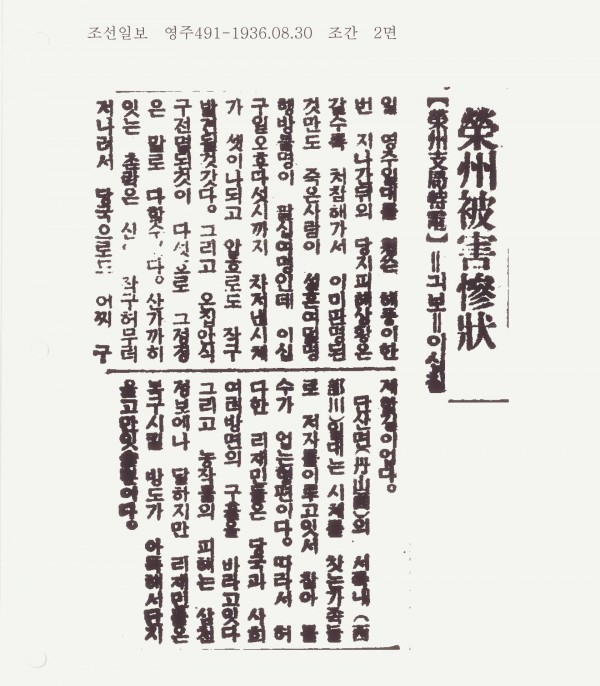 조선일보 영주491-1936.08.30 조간 2면
榮州被害慘狀
【榮州支局特電】=급보=이십칠
일 영주일대를 휩쓴 해풍이한
번 지나간뒤의 당지피해상황은
갈수록 처참해가서 이미판명된
것만도 죽은사람이 설흔여덜명
행방불명이 팔십여명인데 이십
구일오후다섯시까지 차저낸시체
가 셋이나되고 압흐로도 작구
발견될것갓다 그리고 온집안식
구전멸된것이 다섯으로 그정경
은 말로 다할수 다 산가까히
잇는 촌락은 산 작구허무러
저나려서 당국으로도 어찌 구
제할길이업다
단산면(丹山面)의 서쪽내(西
川)일대는 시체를 찻는가족들
로 저자를이루고잇서 참아 볼
수가 업는형편이다 따라서 허
다한 리재민들은 당국과 사회
여러방면의 구휼을 바라고잇다
그리고 농작물의 피해는 삼천
정보에나 달하지만 리재민들은
복구시킬 방도가 아득해서단지
울고만잇슬뿐이다